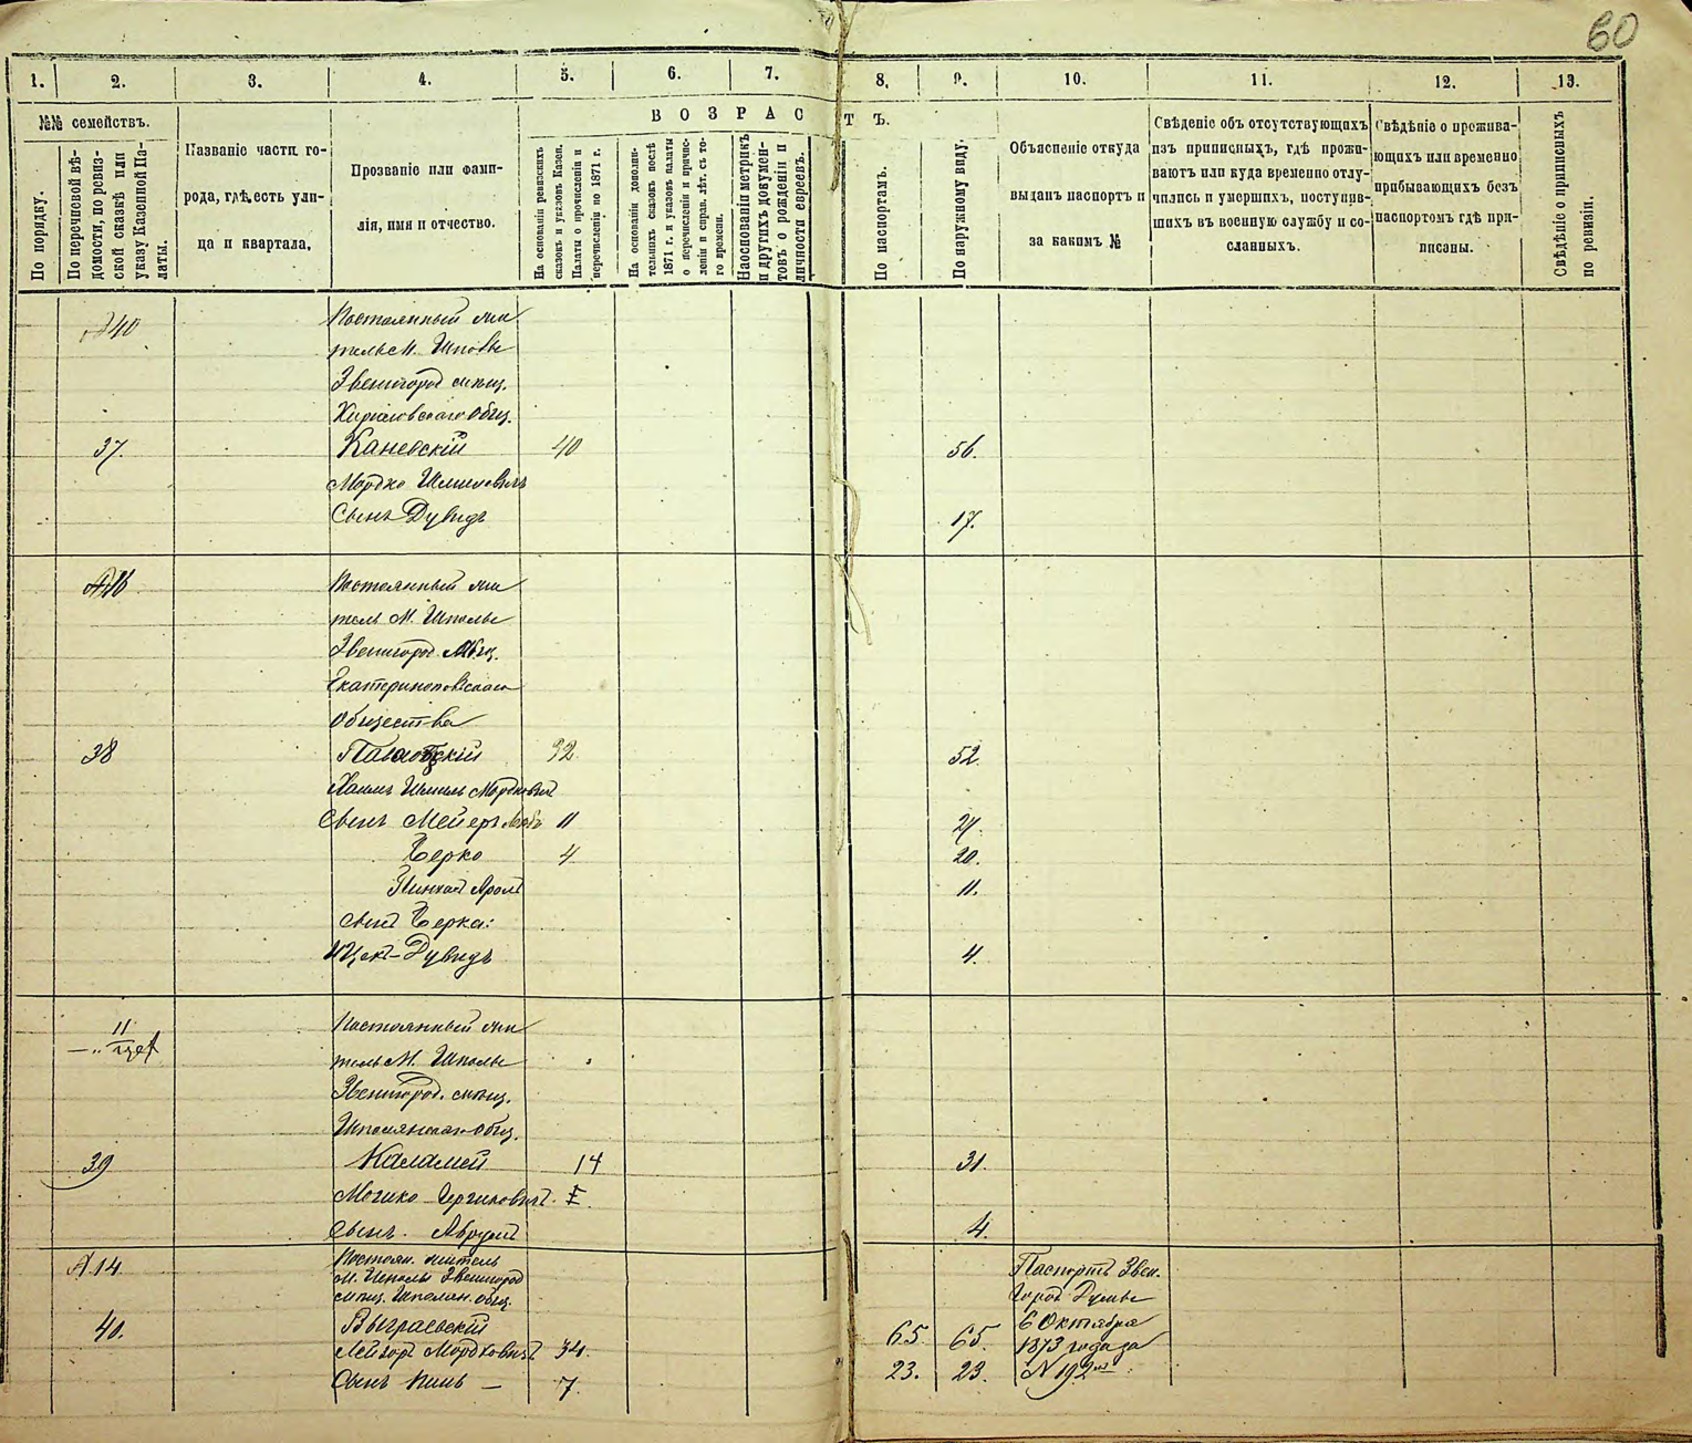 60
1. 2. 3. 4. 5. 6. 7. 8. 9. 10. 11. 12. 13.
№№ семействъ.
По порядку.
По перечневой вѣ-
домости, по ревиз-
ской сказкѣ или
указу Казенной Па-
латы.
Названіе части го-
рода, гдѣ есть ули-
ца и квартала.
Прозваніе или фами-
лія, имя и отчество.
ВОЗРАСТЪ.
На основаніи ревизскихъ
сказокъ и указовъ Казен.
Палаты о прочисленіи и
перечисленіи по 1871 г.
На основаніи дополни-
тельныхъ сказокъ послѣ
1871 г. и указовъ палаты
о перечисленіи и причис-
леніи и справ. лѣт. съ то-
го времени.
На основаніи метрикъ
и другихъ докумен-
товъ о рожденіи и
личности евреевъ.
По паспортамъ.
По наружному виду.
Объясненіе откуда
выданъ паспортъ и
за какимъ №
Свѣденіе объ отсутствующихъ
изъ приписныхъ, гдѣ прожи-
ваютъ или куда временно отлу-
чились и умершихъ, поступив-
шихъ въ военную службу и со-
сланныхъ.
Свѣдѣніе о прожива-
ющихъ или временно
прибывающихъ безъ
паспортомъ гдѣ при-
писаны.
Свѣдѣніе о приписныхъ
по ревизіи.
40 Постоянный жи
тель м. Шполы
Звенигород мѣщ.
Кириловскаго общ.
37. Каневскій 40 56.
Мордко Шмилевичъ
Сынъ Дувидъ 17.
Постоянный жи
тель м. Шполы
Звенигород. мѣщ.
Екатеринопольскаго
общества
38 32 52.
Хаимъ Шмиль Мордковичъ
Сынъ Мейеръ 11
Берко 4 20.
Пинхас Арон 11.
сынъ Берка:
Ицек-Дувидъ 4.
11 Постоянный жи
тель М. Шполы
Звенигород. мѣщ.
Шполянскаго общ.
39 14 31.
Мошко Гершковичъ
Сынъ. Аврумъ 4.
14 Постоян. житель
м. Шполы Звенигород
мѣщ. Шполян. общ.
40. Выграевскій 65. 65.
Лейзоръ Мордковичъ 34.
Сынъ 7. 23. 23.
Паспортъ Звен.
Город Думы
6 Октября
1873 года за
№ 192